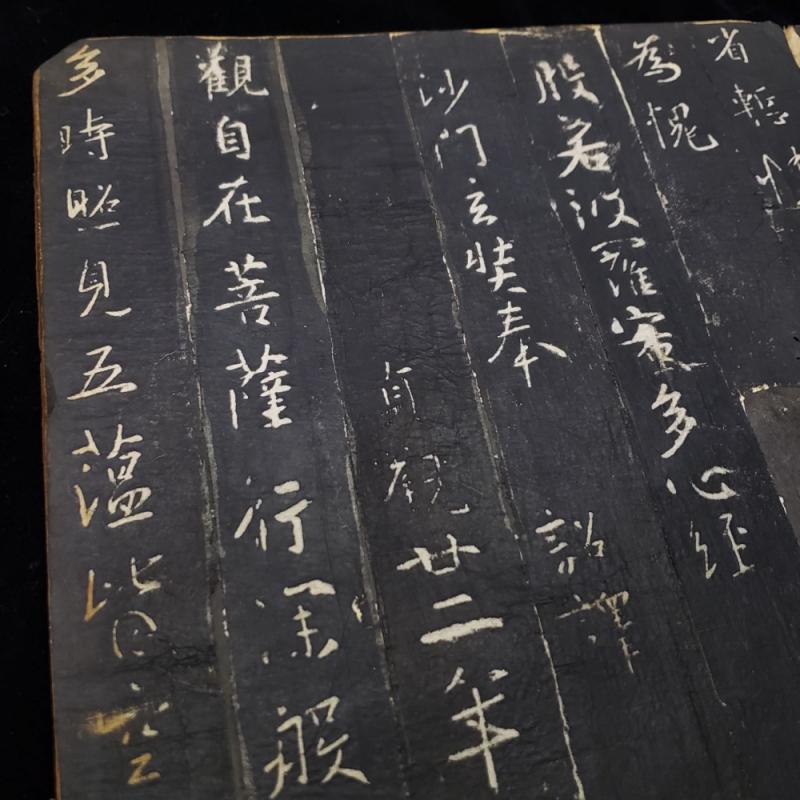 省慙
為愧
般若波羅蜜多心經
沙門玄奘奉 詔譯
貞觀廿二年
觀自在菩薩行深般
多時照見五蘊皆空